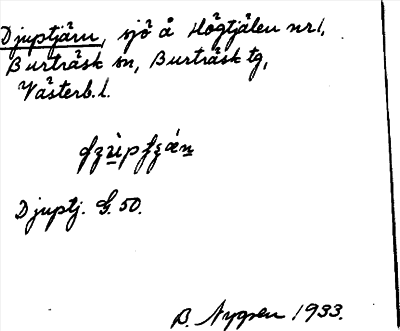 Djuptjärn, sjö å Högtjälen nr 1,
Burträsk sn, Burträsk tg,
Västerb. l.
Djuptj. G. 50.
B. Nygren 1933.